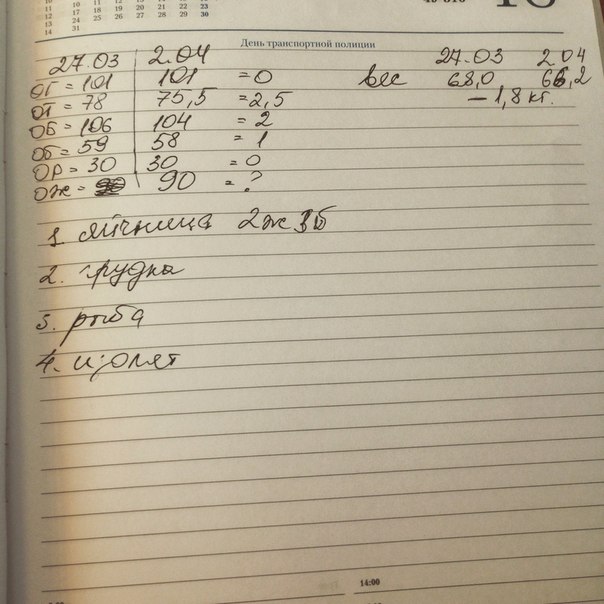 10 10 11 12 13 14 15 16
11 17 18 19 20 21 22 23
12 24 25 26 27 28 29 30
13 31
14
День транспортной полиции
27.03 2.04
ОГ = 101 101 = 0
ОТ = 78 75,5 = 2,5
ОБ = 106 104 = 2
ОБ = 59 58 = 1
ОР = 30 30 = 0
ОЖ = 90 = ?
27.03 2.04
вес 68,0 66,2
- 1,8 кг.
1. яичница 2ж 3б
2. грудка
3. рыба
4. изолят
14:00